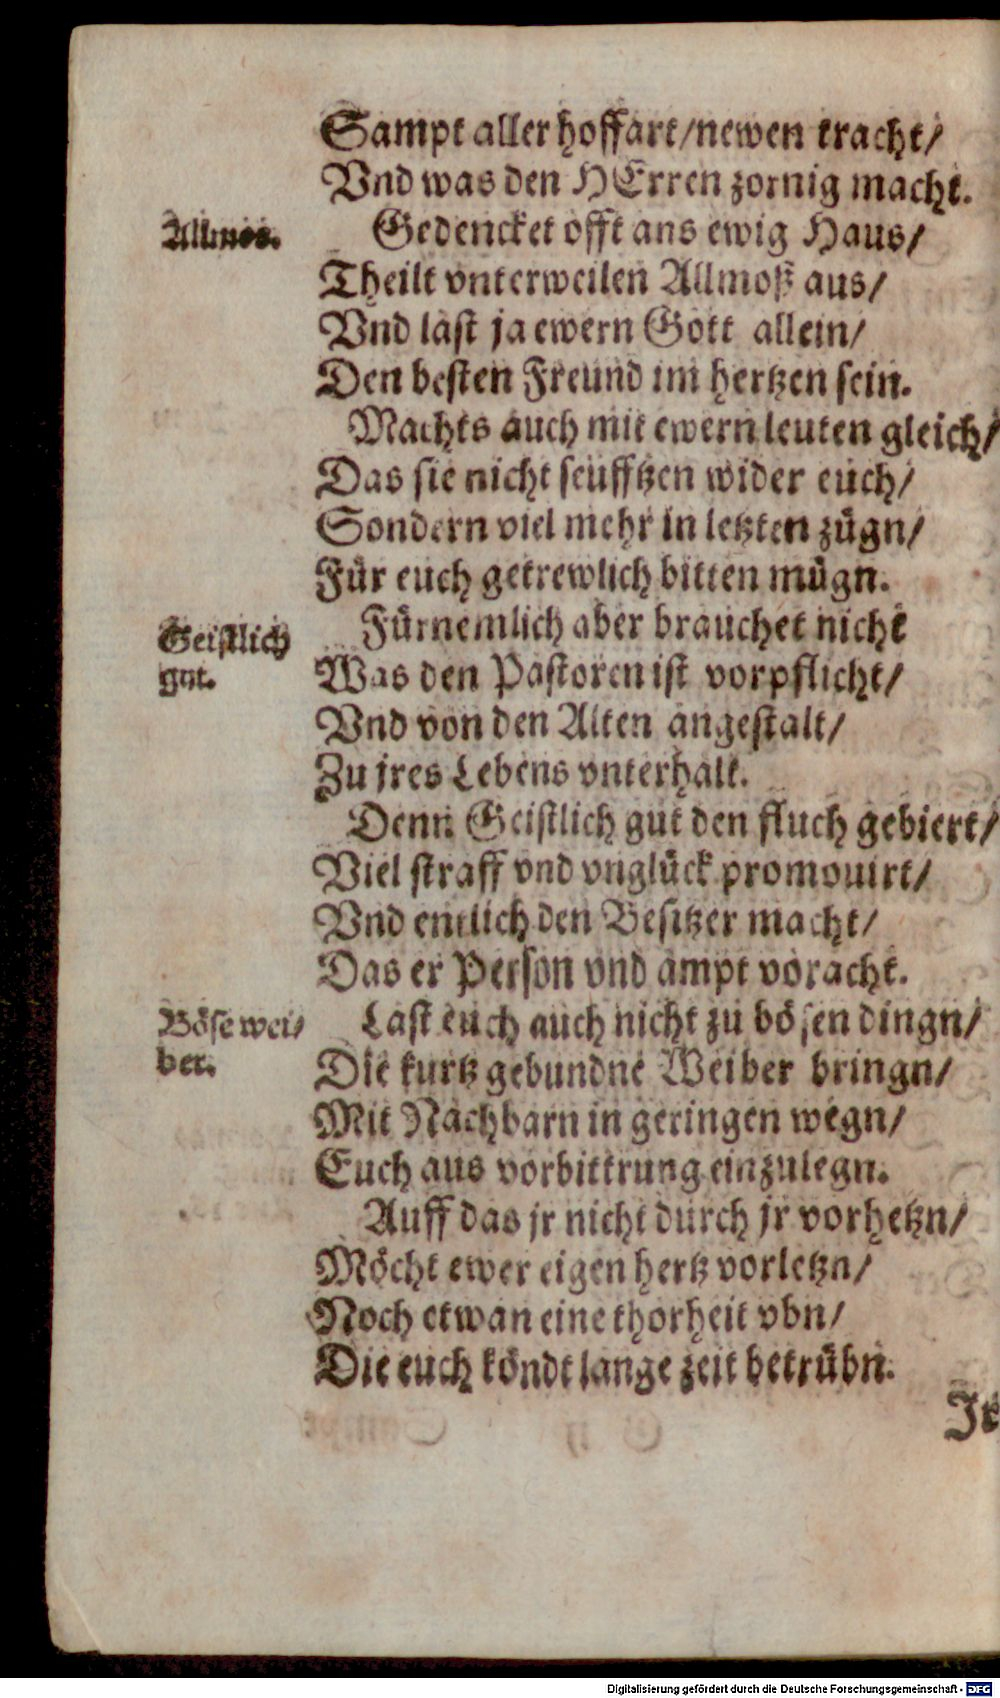 Sampt aller hoffart/newen tracht/
Vnd was den HErren zornig macht.
Allmos.
Gedencket offt ans ewig Haus/
Theilt vnterweilen Allmoß aus/
Vnd last ja ewern Gott allein/
Den besten Freund im hertzen sein.
Machts auch mit ewern leuten gleich/
Das sie nicht seufftzen wider euch/
Sondern viel mehr in letzten zügn/
Für euch getrewlich bitten mügn.
Geistlich
gut.
Fürnemlich aber brauchet nicht
Was den Pastoren ist vorpflicht/
Vnd von den Alten angestalt/
Zu jres Lebens vnterhalt.
Denn Geistlich gut den fluch gebiert/
Viel straff vnd vnglück promouirt/
Vnd entlich den Besitzer macht/
Das er Person vnd ampt voracht.
Böse wei/
ber.
Last euch auch nicht zu bösen dingn/
Die kurtz gebundne Weiber bringn/
Mit Nachbarn in geringen wegn/
Euch aus vorbittrung einzulegn.
Auff das jr nicht durch jr vorhetzn/
Möcht ewer eigen hertz vorletzn/
Noch etwan eine thorheit vbn/
Die euch köndt lange zeit betrübn.
Jr
Digitalisierung gefördert durch die Deutsche Forschungsgemeinschaft - DFG